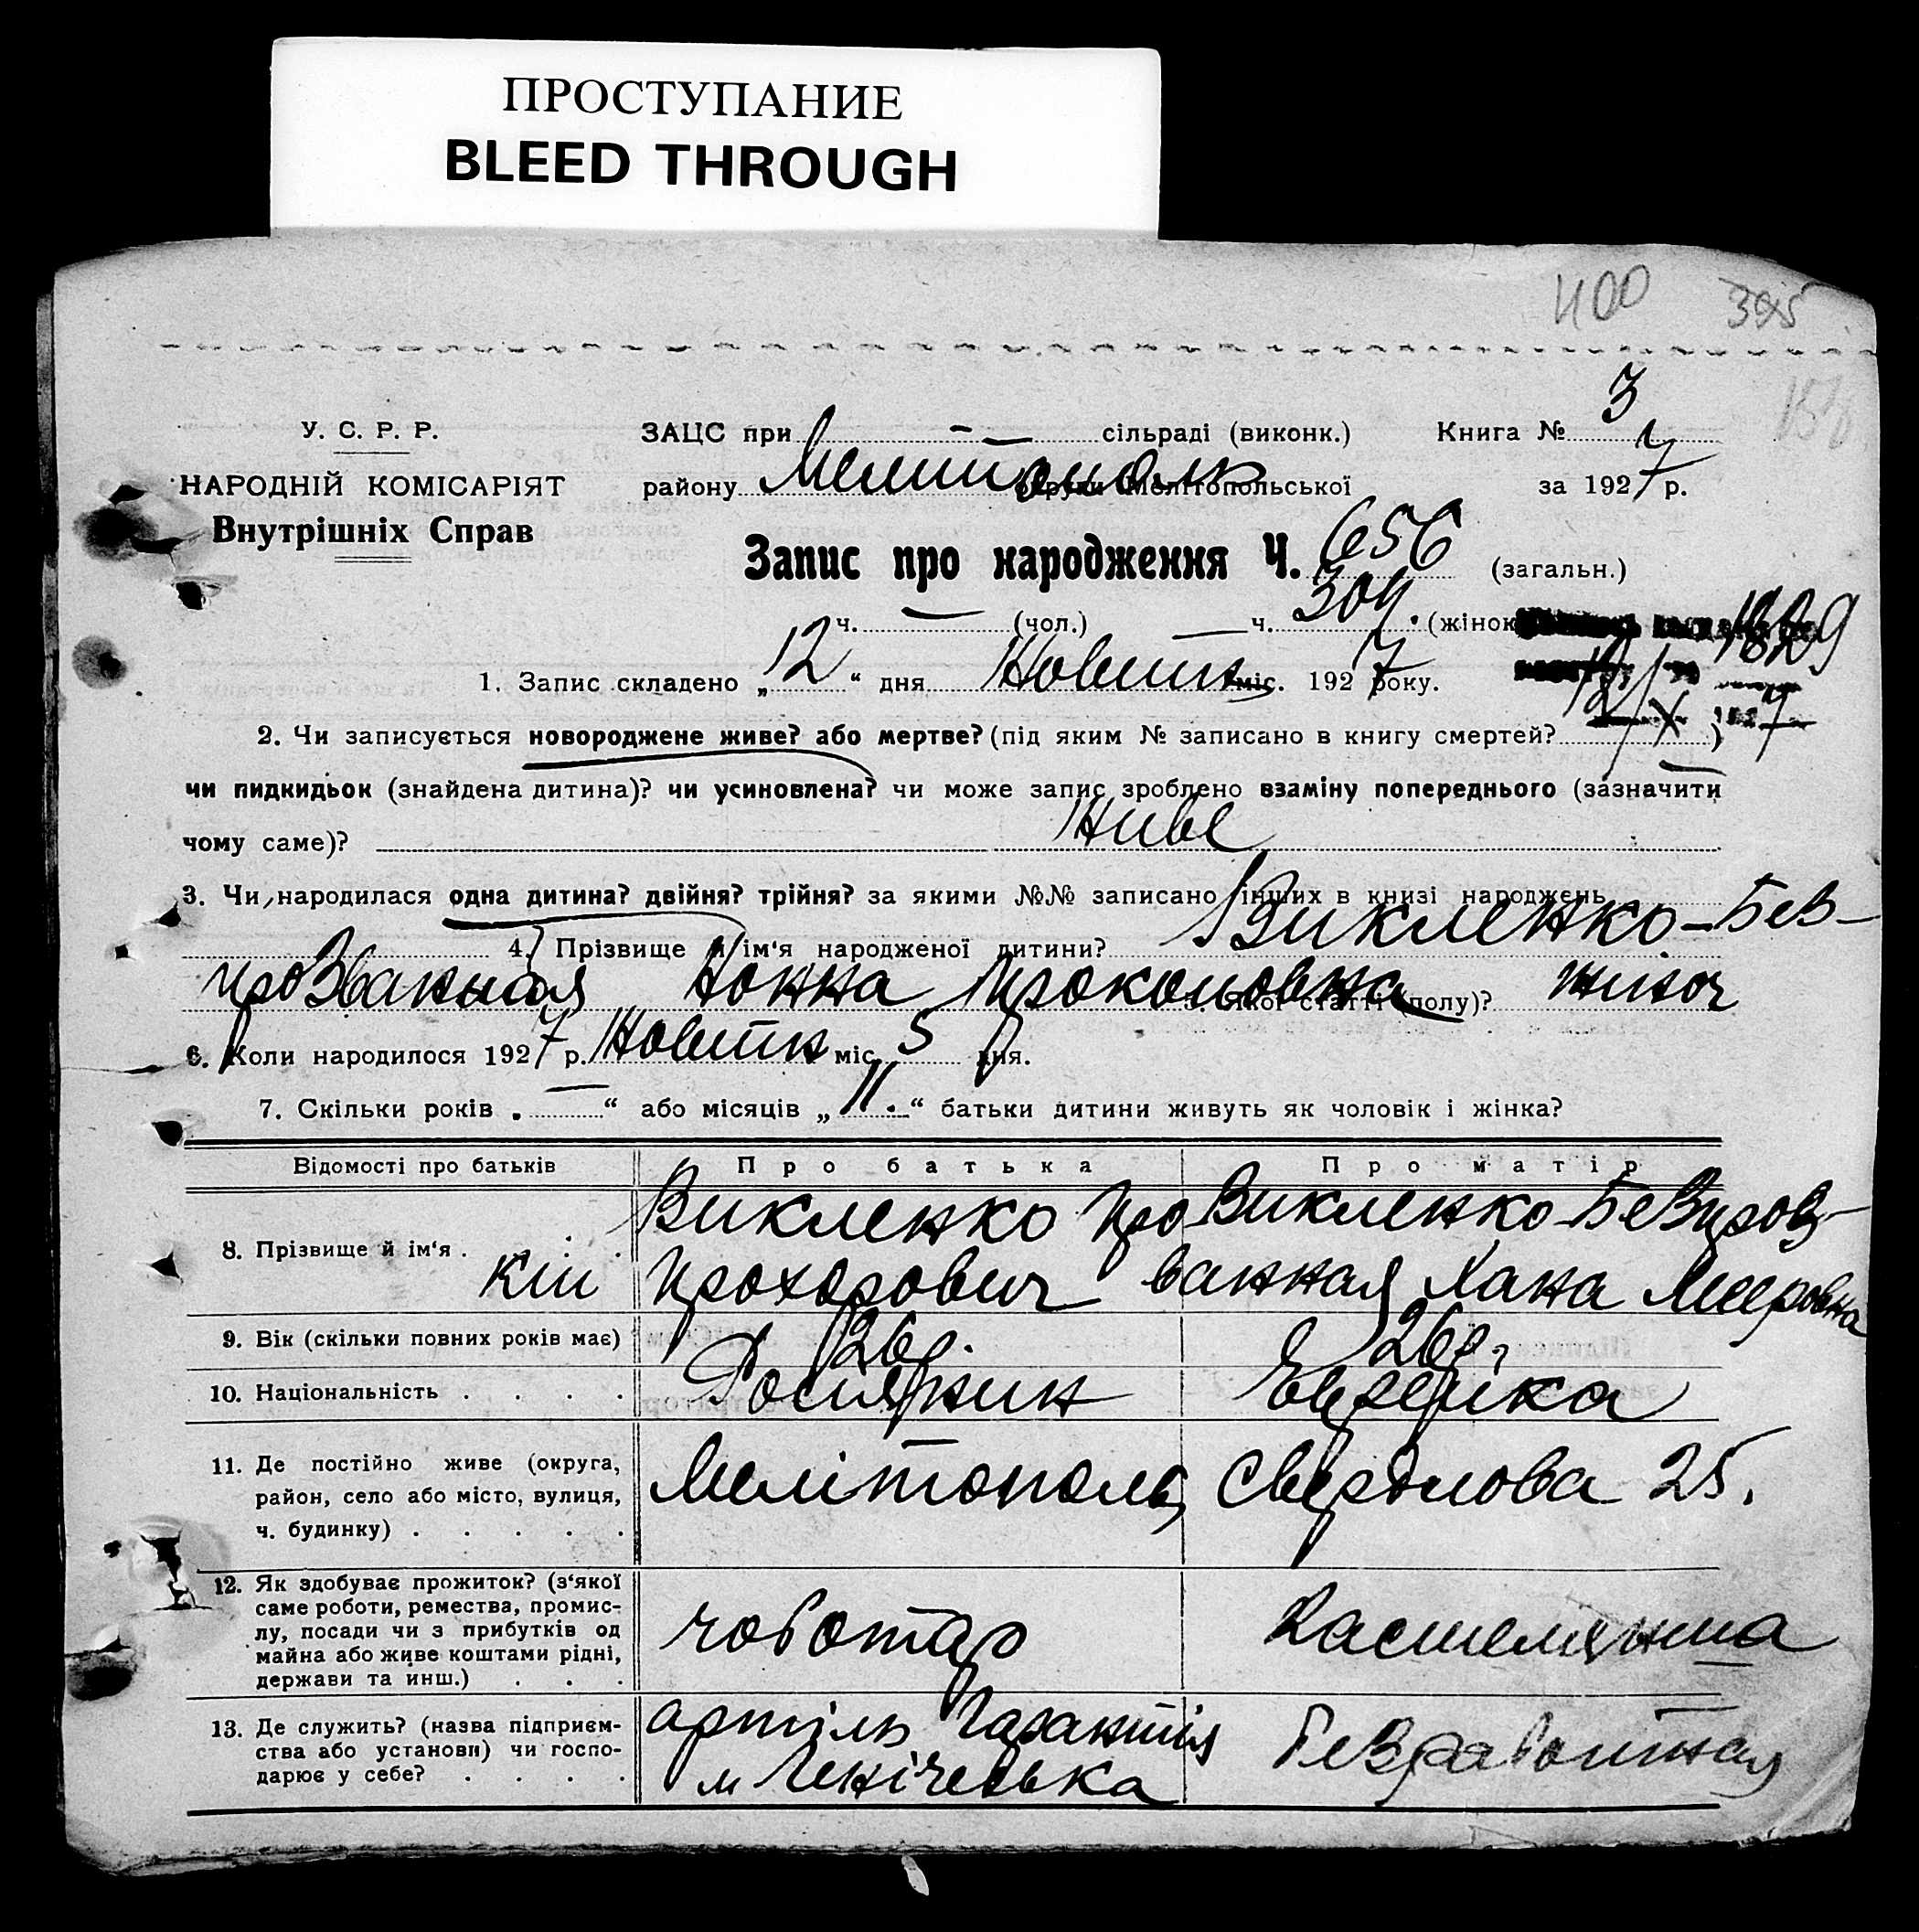 ПРОСТУПАНИЕ
BLEED THROUGH
400 395
У. С. Р. Р.
НАРОДНІЙ КОМІСАРІЯТ
Внутрішніх Справ
ЗАЦС при сільраді (виконк.) Книга № 3
району Мелитополь округи Мелітопольської за 1927 р.
Запис про народження Ч. 656 (загальн.)
ч. — (чол.) — ч. 304. (жінок
1829
1. Запис складено „12“ дня Жовтня міс. 1927 року.
2. Чи записується новороджене живе? або мертве? (під яким № записано в книгу смертей? )
12/X 1927
чи пидкидьок (знайдена дитина)? чи усиновлена? чи може запис зроблено взаміну попереднього (зазначити
чому саме)? Живе
3. Чи народилася одна дитина? двійня? трійня? за якими №№ записано інших в книзі народжень
4. Прізвище й ім'я народженої дитини? Викленко-Без-
прозванная Нонна Прокоповна 5. Якої статті (полу)? жіноч
6. Коли народилося 1927 р. Жовтн міс. 5 дня.
7. Скільки років „—“ або місяців „11.“ батьки дитини живуть як чоловік і жінка?
Відомості про батьків Про батька Про матір
8. Прізвище й ім'я . . . . Викленко Про Викленко-Безпроз-
кіп Прохорович ванная Хана Мееровна
9. Вік (скільки повних років має) 26 р. 26 р.
10. Національність . . . . Росіянин Еврейка
11. Де постійно живе (округа,
район, село або місто, вулиця,
ч. будинку) . . . . .
Мелітополь, Свердлова 25.
12. Як здобуває прожиток? (з'якої
саме роботи, ремества, промис-
лу, посади чи з прибутків од
майна або живе коштами рідні,
держави та инш.) . . .
чоботар
13. Де служить? (назва підприєм-
ства або установи) чи госпо-
дарює у себе? . . . .
артіль
м Генічеська
Безработная